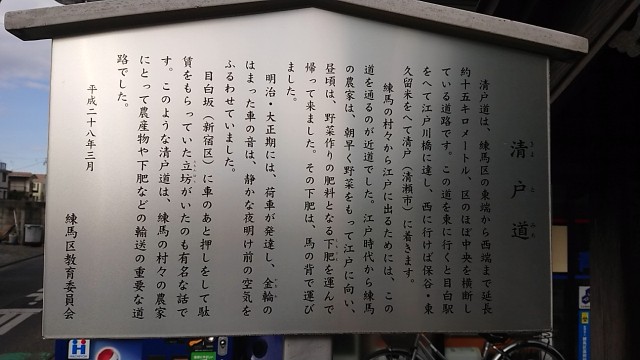 清戸道
きよとみち
清戸道は、練馬区の東端から西端まで延長
約十五キロメートル、区のほぼ中央を横断し
ている道路です。この道を東に行くと目白駅
をへて江戸川橋に達し、西に行けば保谷・東
久留米をへて清戸（清瀬市）に着きます。
練馬の村々から江戸に出るためには、この
道を通るのが近道でした。江戸時代から練馬
の農家は、朝早く野菜をもって江戸に向い、
昼頃は、野菜作りの肥料となる下肥を運んで
帰って来ました。その下肥は、馬の背で運び
ました。
明治・大正期には、荷車が発達し、金輪の
はまった車の音は、静かな夜明け前の空気を
ふるわせていました。
目白坂（新宿区）に車のあと押しをして駄
賃をもらっていた立坊がいたのも有名な話で
す。このような清戸道は、練馬の村々の農家
にとって農産物や下肥などの輸送の重要な道
路でした。
平成二十八年三月
練馬区教育委員会